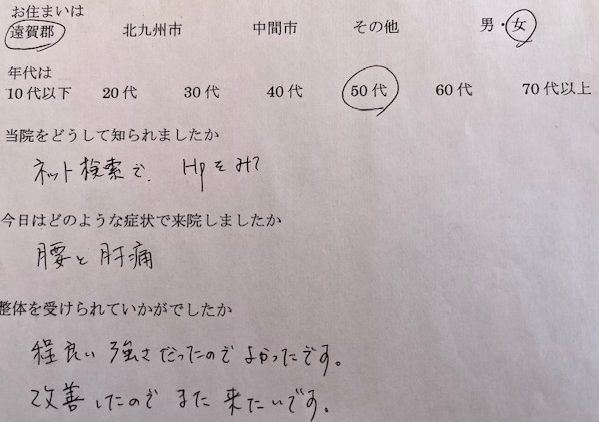 お住まいは
遠賀郡 北九州市 中間市 その他 男・女
年代は
10代以下 20代 30代 40代 50代 60代 70代以上
当院をどうして知られましたか
ネット検索で、Hpをみて
今日はどのような症状で来院しましたか
腰と肝痛
整体を受けられていかがでしたか
程良い強さだったのでよかったです。
改善したのでまた来たいです。